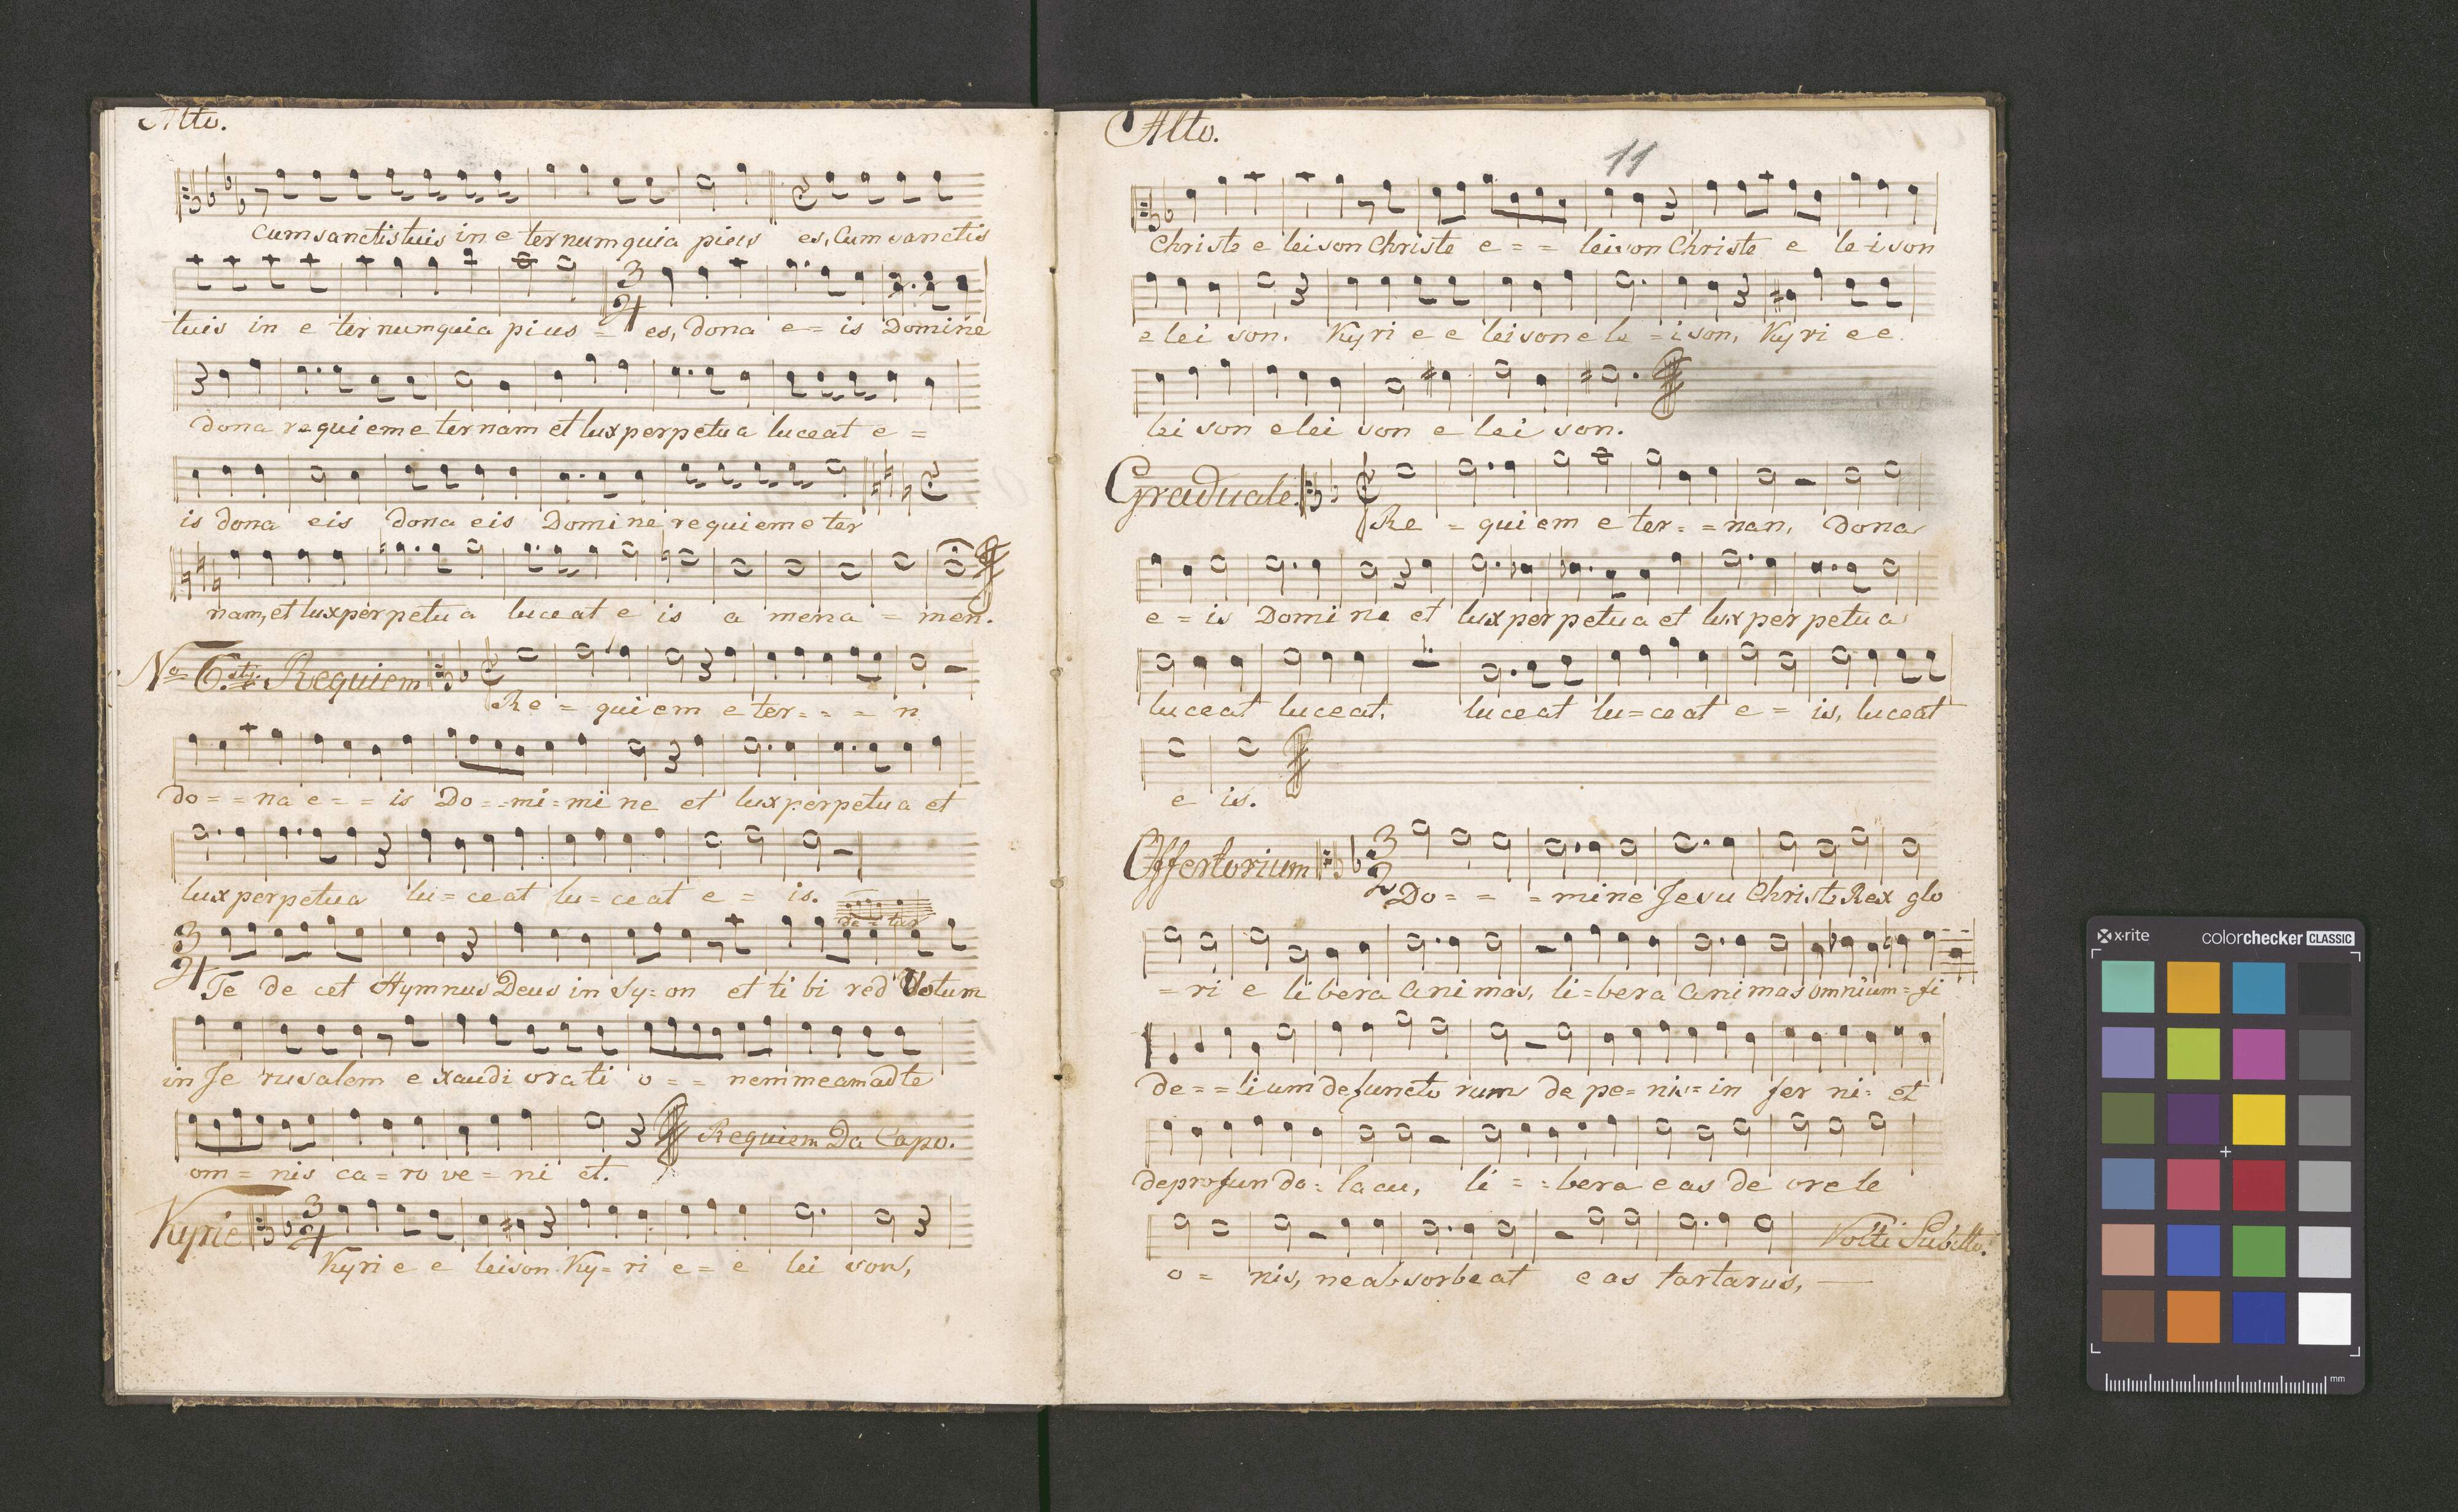 Alto.
cum sanctis tuis in e ternum quia pius es, Cum sanctis
tuis in e ternum quia pius = es, dona e = is Domine
dona requiem e ternam et lux perpetua luceat e =
is dona eis dona eis Domine requiem e ter
nam, et lux perpetua luceat e is a men a = men.
No 6.sti Requiem
Re = quiem e ter = = = n
do = = na e = = is Do = = mi = mi ne et lux perpetua et
lux perpetua lu = ceat lu = ceat e = is.
de = tur
Te de cet Hymnus Deus in Sy = on et ti bi red Votum
in Je rusalem e xaudi orati o = = nem meam ad te
om = nis ca = ro ve = ni et. Requiem Da Capo.
Kyrie
Kyri e e leison Ky = ri e = e lei son,
Alto.
11
Christe e leison Christe e = = leison Christe e le = i son
e lei son. Kyri e e leison e le = i son, Kyri e e
lei son e lei son e lei son.
Graduale.
Re = quiem e ter = = nan, dona
e = is Domi ne et lux perpetua et lux perpetua
luceat luceat, luceat lu = ceat e = is, luceat
e is.
Offertorium
3
2
Do = = = mine Jesu Christe Rex glo
= ri e libera animas, li = bera animas omnium = fi
de = = lium defuncto rum de pe = nis = in fer ni = et
de profun do = lacu, li = = bera e as de ore le
o = nis, ne absorbeat e as tartarus, Volti Subitto.
x-rite
colorchecker CLASSIC
mm